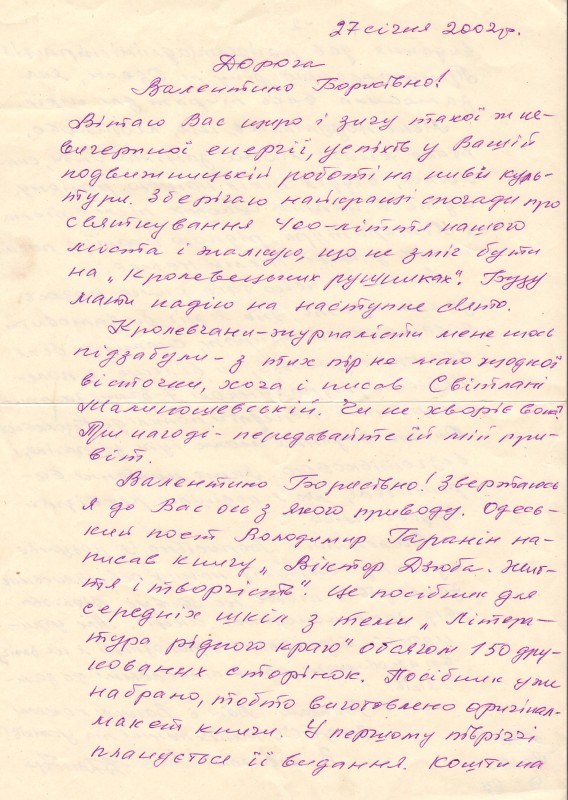 27 січня 2002р.
Дорога
Валентино Борисівно!
Вітаю Вас щиро і зичу такої ж не-
вичерпної енергії, успіхів у Вашій
подвижницькій роботі на ниві куль-
тури. Зберігаю найкращі спогади про
святкування 400-ліття нашого
міста і жалкую, що не зміг бути
на „Кролевецьких рушниках". Буду
мати надію на наступне свято.
Кролевчани-журналісти мене щось
підзабули - з тих пір не маю жодної
вісточки, хоча і писав Світлані
Малиношевській. Чи не хворіє вона?
При нагоді - передавайте їй мій при-
віт.
Валентино Борисівно! Звертаюсь
я до Вас ось з якого приводу. Одесь-
кий поет Володимир Гаранін на-
писав книгу „Віктор Дзюба. Жит-
тя і творчість". Це посібник для
середніх шкіл з теми „Літера-
тура рідного краю" обсягом 150 дру-
кованих сторінок. Посібник уже
набрано, тобто виготовлено оригінал-
макет книги. У першому півріччі
планується її видання. Кошти на